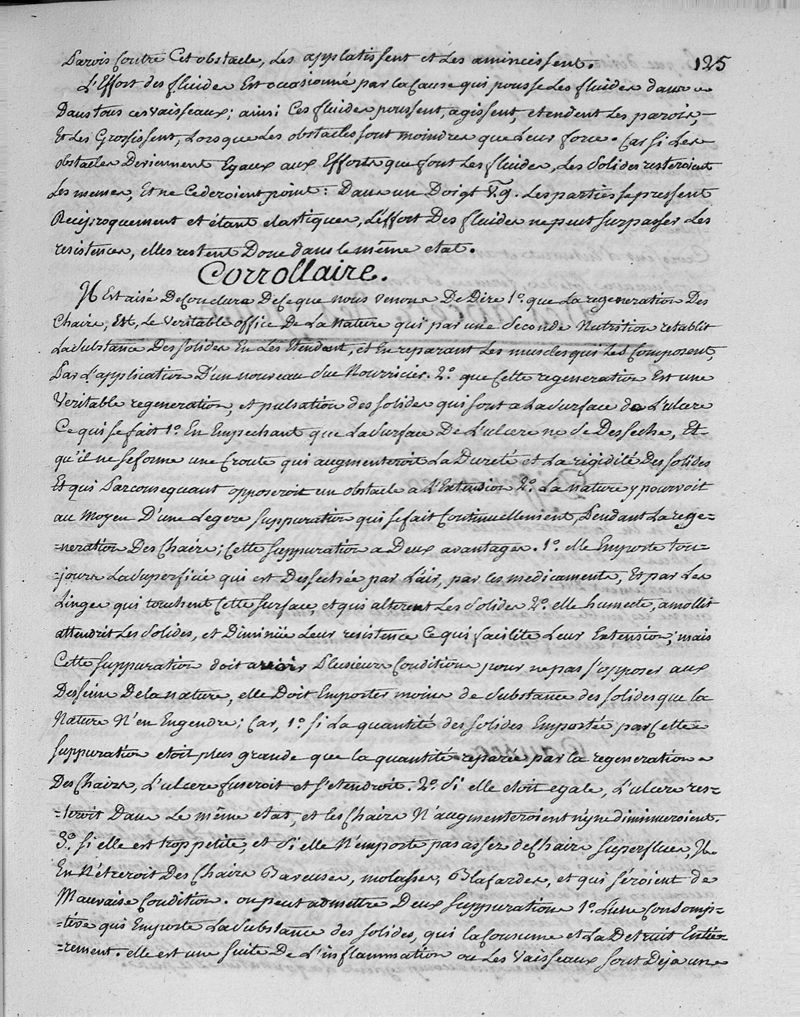 Parois Contre Cet obstacle, Les applatissent et Les amincissent.
125
L'Effort des fluides Est occasionné par la Cause qui pousse Les fluides dans
Dans tous ces Vaisseaux; ainsi Ces fluides poussent, agissent, etendent Les parois
Et Les Grossissent, Lorsque Les obstacles sont moindres que Leur force. Car si Les
obstacles Deviennent Egaux aux Efforts que font Les fluides, Les Solides resteroient
Les memes, Et ne Cederoient point: Dans un Doigt V.g. Les parties se pressent
Reciproquement et étant elastiques, L'effort Des fluides ne peut surpasser Les
resistences, elles restent Donc dans le même etat.
Corrollaire.
Il Est aisé De Conclure De Ce que nous venons De Dire 1.º que La regeneration Des
Chairs, Est, Le Veritable office De La Nature qui par une Seconde Nutrition retablit
La Substance Des Solides En Les Etendant, et En reparant Les muscles qui Les Composent,
Par L'application D'un nouveau Suc Nourricier. 2.º que Cette regeneration Est une
Veritable regeneration, et pulsation des Solides qui sont a La Surface de L'ulcere
Ce qui se fait 1.º En Empechant que La Surface De L'ulcere ne se Desseche, Et
qu'il ne se forme une Croute qui augmenteroit La Dureté et La rigidité Des Solides
Et qui Par consequant opposeroit un obstacle a L'Extension 2.º La nature y pourvoit
au Moyen D'une Legere Suppuration qui se fait Continuellement, Pendant La rege-
-neration Des Chairs; Cette Suppuration a Deux avantages. 1.º elle Emporte tou-
-jours La Superficie qui est Dessechée par L'air, par les medicaments, Et par Les
Linges qui touchent Cette Surface, et qui alterent Les Solides 2.º elle humecte, amollit
attendrit Les Solides, et Diminüe Leur resistence Ce qui facilite Leur Extension; mais
Cette Suppuration doit avoir Plusieurs Conditions pour ne pas s'opposer aux
Desseins De La nature, elle Doit Emporter moins de Substance des Solides que la
Nature N'en Engendre; Car, 1.º si La quantité des Solides Emportée par Cette
Suppuration etoit plus grande que la quantité reparée par la regeneration
Des Chairs, L'ulcere fuseroit et s'etendroit. 2.º Si elle etoit egale, L'ulcere res-
-teroit Dans Le même etat, et les Chairs N'augmenteroient ny ne diminueroient.
3.º si elle est trop petite, et Si elle N'emporte pas assez de Chairs Superflues, Il
En Naîtreroit Des Chairs Baveuses, molasses, Blafardes, et qui seroient de
Mauvaise Condition. on peut admettre Deux Suppurations 1.º L'une Consomp-
-tive qui Emporte La Substance des Solides, qui la Consume et La Detruit Entie-
-rement. elle est une Suite De L'inflammation ou Les Vaisseaux sont Deja une